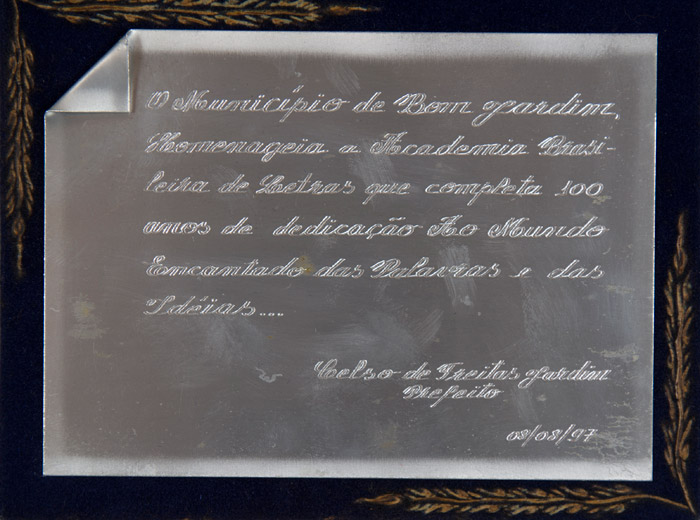 O Município de Bom Jardim,
Homenageia a Academia Brasi-
leira de Letras que completa 100
anos de dedicação Ao Mundo
Encantado das Palavras e das
Idéias...
Celso de Freitas Jardim
Prefeito
08/08/97